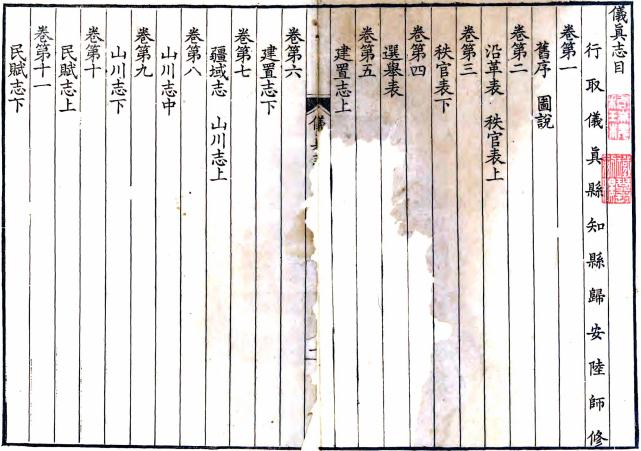 儀眞志目
行取儀眞縣知縣歸安陸師修
卷第一
舊序　圖說
卷第二
沿革表　秩官表上
卷第三
秩官表下
卷第四
選舉表
卷第五
建置志上
儀
二
卷第六
建置志下
卷第七
疆域志　山川志上
卷第八
山川志中
卷第九
山川志下
卷第十
民賦志上
卷第十一
民賦志下